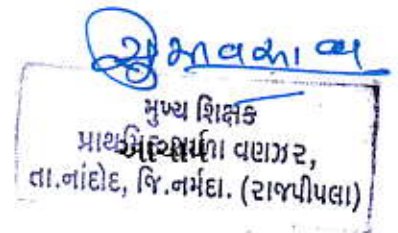 મુખ્ય શિક્ષક
પ્રાથમિક શાળા વણઝર,
આચાર્ય
તા.નાંદોદ, જિ.નર્મદા. (રાજપીપલા)